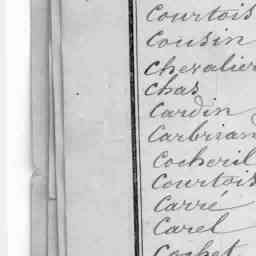 Courtois
Cousin
Chevalier
Chas
Cardin
Carbrian
Cocheril
Courtois
Carré
Carel
Cochet